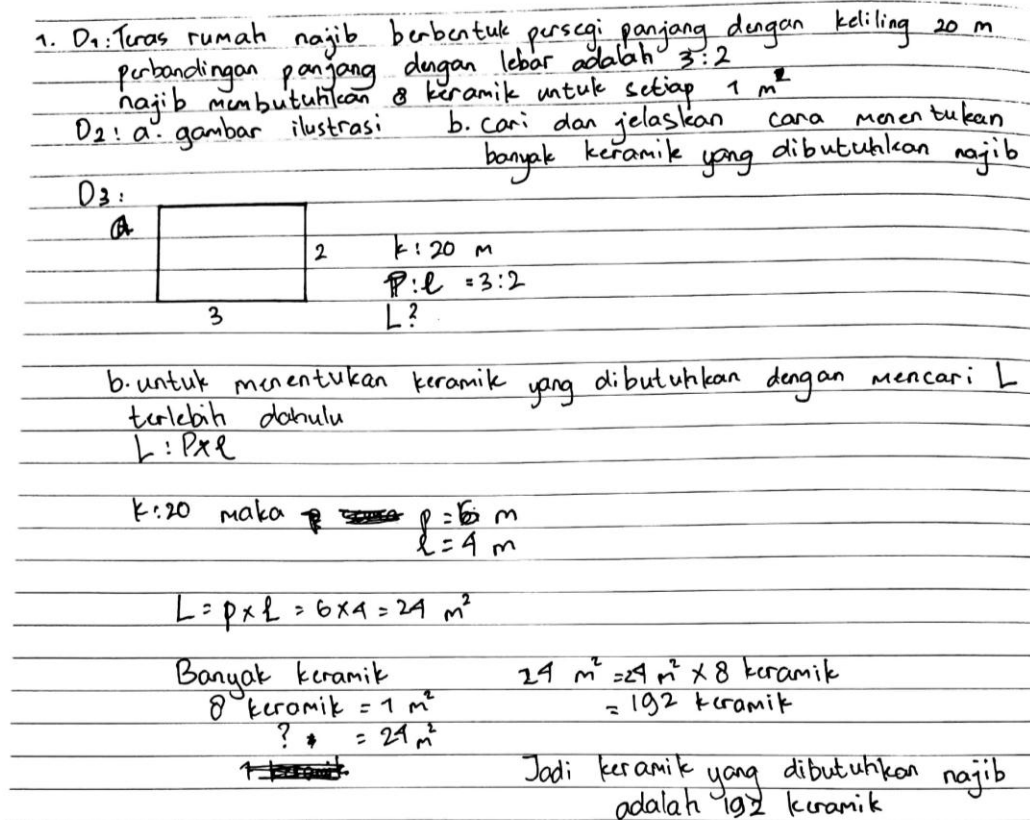 1. D1: Teras rumah najib berbentuk persegi panjang dengan keliling 20 m
perbandingan panjang dengan lebar adalah 3:2
najib membutuhkan 8 keramik untuk setiap 1 m²
D2: a. gambar ilustrasi b. cari dan jelaskan cara menentukan
banyak keramik yang dibutuhkan najib
D3:
a
2 k: 20 m
P:l = 3:2
3 L?
b. untuk menentukan keramik yang dibutuhkan dengan mencari L
terlebih dahulu
L: P×l
k:20 maka p = 6 m
l = 4 m
L = p×l = 6×4 = 24 m²
Banyak keramik 24 m² = 24 m² × 8 keramik
8 keramik = 1 m² = 192 keramik
? = 24 m²
Jadi keramik yang dibutuhkan najib
adalah 192 keramik